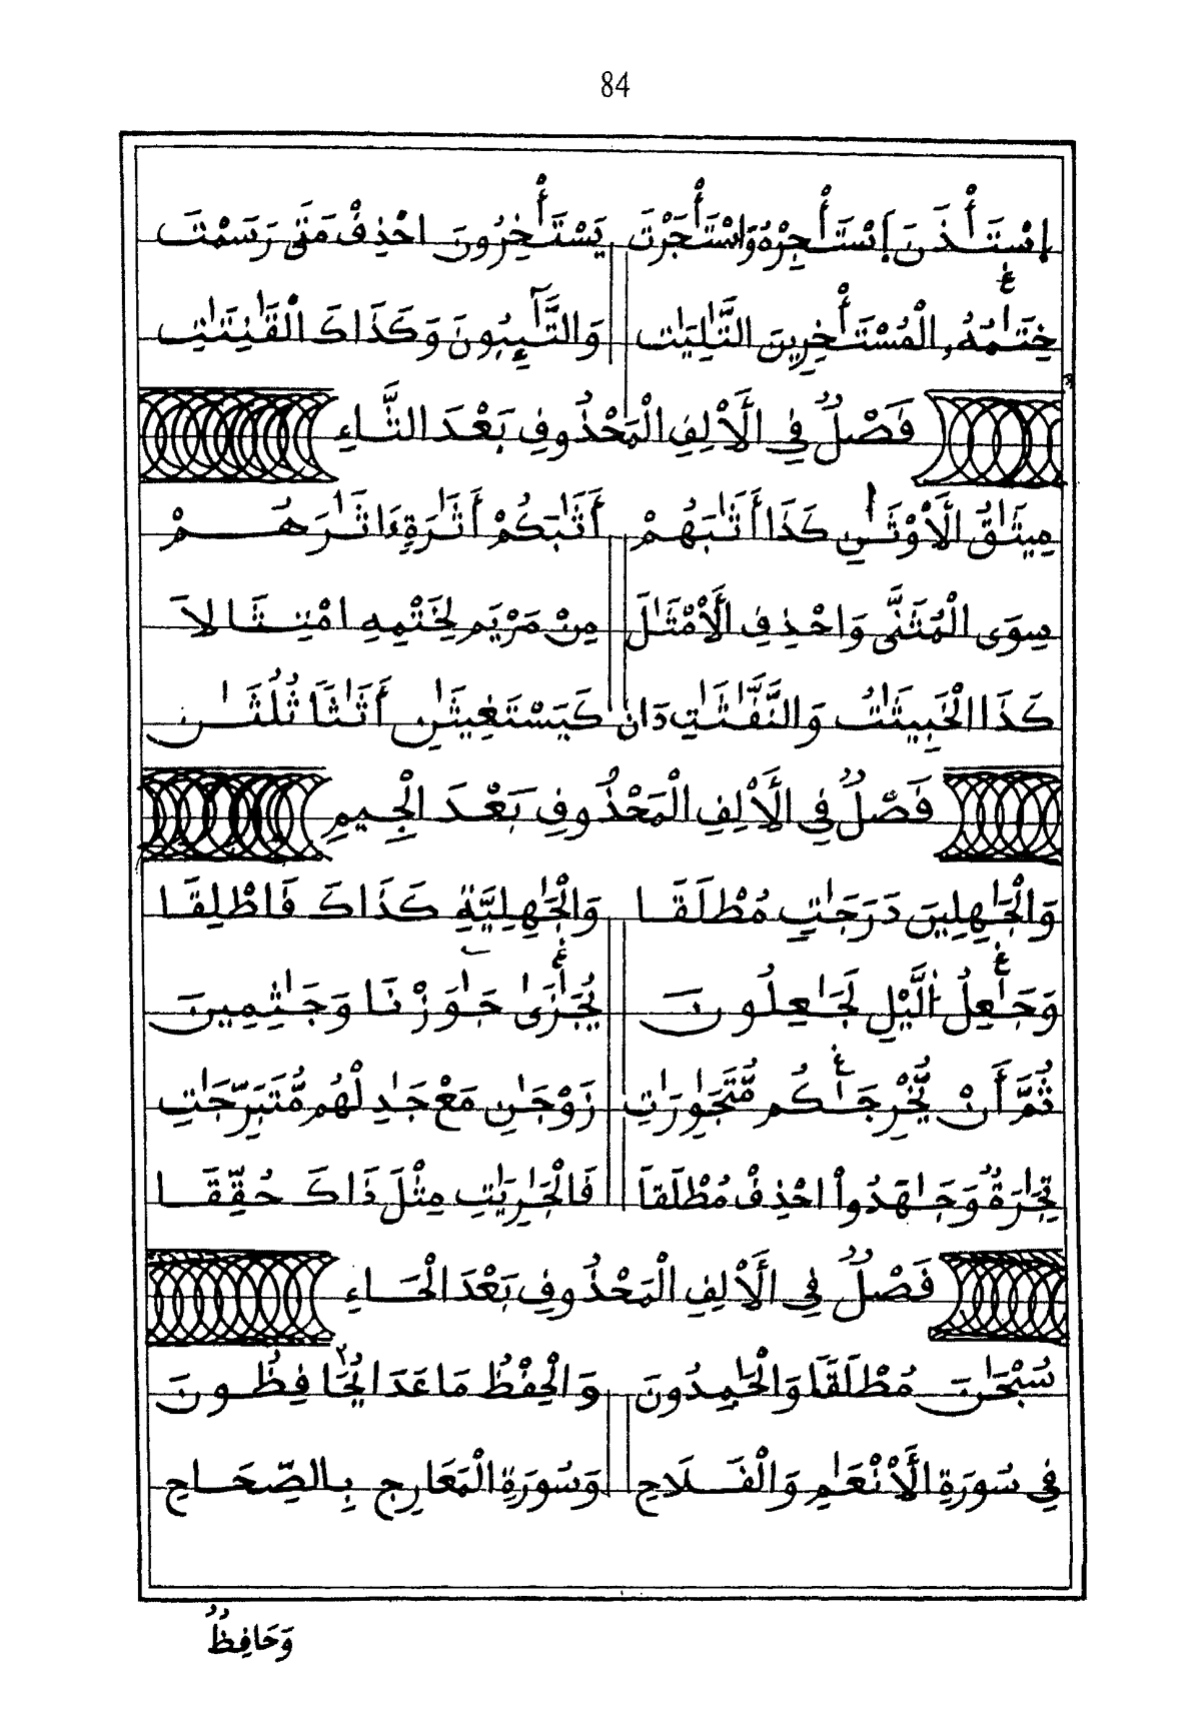 84
إِسْتَـٔۡذَنَ إَسْتَـٔۡجِرْهُ وَاسْتَـٔۡجَرْتَ يَسْتَـٔۡخِرُونَ احْذِفْ مَتَى رَسَمْتَ
خِتَـٰمُهُۥ الْمُسْتَـٔۡخِرِينَ التَّـٰلِيَـٰتِ وَالتَّـٰٓئِبُونَ وَكَذَاكَ الْقَـٰنِتَـٰتِ
فَصْلٌ فِي الَأْلِفِ الْمَحْذُوفِ بَعْدَ الثَّاءِ
مِيثَـٰقُ الَأْوْثَـٰنِ كَذَا أَثَـٰبَهُمْ أَثَـٰبَكُمْ أَثَـٰرَةٍ ءَاثَـٰرَهُمْ
سِوَى الْمُثَنَّى وَاحْذِفِ الَأْمْثَـٰلَ مِنْ مَرْيَمٍ لِخَتْمِهِ امْتِثَالاَ
كَذَا الْخَبِيثَـٰتُ وَالنَّفَّـٰثَـٰتِ دَانْ كَيَسْتَغِيثَـٰنِ أَثَـٰثًا ثُلُثَـٰنْ
فَصْلٌ فِي الَأْلِفِ الْمَحْذُوفِ بَعْدَ الْجِيمِ
وَالْجَـٰهِلِينَ دَرَجَـٰتٍ مُطْلَقَا وَالْجَـٰهِلِيَّةِ كَذَاكَ فَاطْلِقَا
وَجَـٰعِلُ الَّيْلِ لَجَـٰعِلُونَ يُجَـٰزَىٰ جَـٰوَزْنَا وَجَـٰثِمِينَ
ثُمَّ أَنْ يُّخْرِجَـٰكُم مُّتَجَـٰوِرَاتٍ زَوْجَـٰنِ مَعْ جَـٰدِلْهُم مُّتَبَرِّجَـٰتٍ
تِجَـٰرَةٌ وَجَـٰهَدُواْ احْذِفْ مُطْلَقاَ فَالْجَـٰرِيَـٰتِ مِثْلَ ذَاكَ حُقِّقَا
فَصْلٌ فِي الَأْلِفِ الْمَحْذُوفِ بَعْدَ الْحَاءِ
سُبْحَـٰنَ مُطْلَقًا وَالْحَـٰمِدُونَ وَالْحِفْظُ مَا عَدَا يُحَافِظُونَ
فِي سُورَةِ الَأْنْعَـٰمِ وَالْفَلَاحِ وَسُورَةِ الْمَعَارِجِ بِالصِّحَاحِ
وَحَافِظٌ